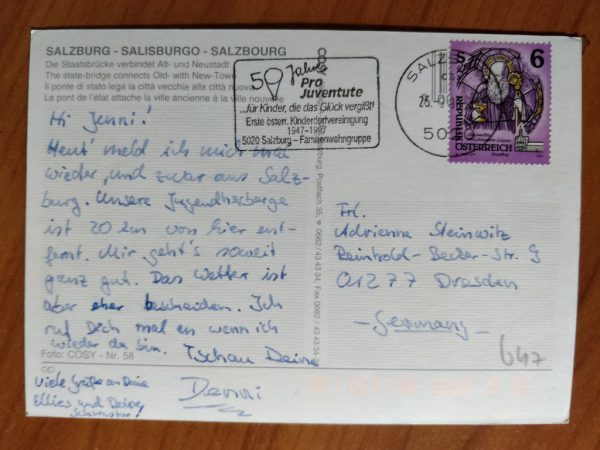 SALZBURG - SALISBURGO - SALZBOURG
Die Staatsbrücke verbindet Alt- und Neustadt
The state-bridge connects Old- with New-Town
Il ponte di stato lega la città vecchia alla città nuova
Le pont de l'état attache la ville ancienne à la ville nouvelle
50 Jahre
Pro
Juventute
...für Kinder, die das Glück vergißt!
Erste österr. Kinderdorfvereinigung
1947-1997
5020 Salzburg - Familienwohngruppe
SALZ
25.-0
50
6
REPUBLIK
ÖSTERREICH
Hi Jenni!
Heut' meld ich mich mal
wieder, und zwar aus Salz-
burg. Unsere Jugendherberge
ist 20 km von hier ent-
fernt. Mir geht's soweit
ganz gut. Das Wetter ist
aber eher bescheiden. Ich
ruf Dich mal an wenn ich
wieder da bin. Tschau Deine
Denni
Viele Grüße an Deine
Ellies und Deine
Schwester
Foto: COSY - Nr. 58
Salzburg, Postfach 35, ☎ 0662 / 43 43 34, Fax 0662 / 43 43 34
Frl.
Adrienne Steinwitz
Reinhold-Becker-Str. 9
01277 Dresden
- Germany -
647